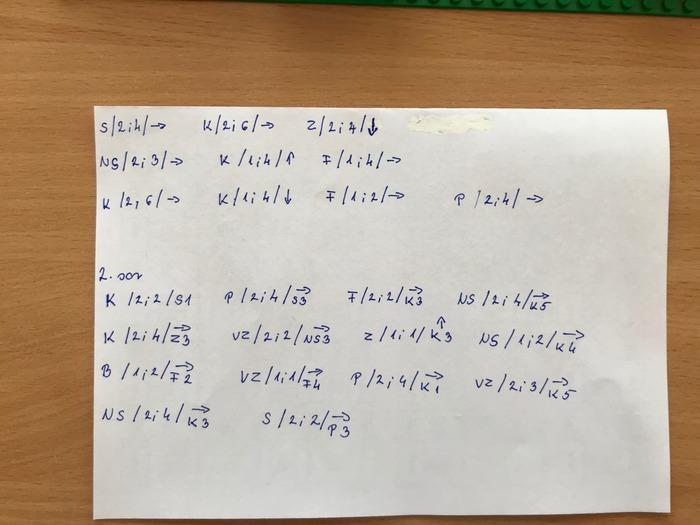 S/2;4/→ K/2;6/→ Z/2;4/↓
NS/2;3/→ K/1;4/↑ F/1;4/→
K/2,6/→ K/1;4/↓ F/1;2/→ P/2;4/→
2. sor
K/2;2/S1 P/2;4/S3→ F/2;2/K3→ NS/2;4/K5→
K/2;4/Z3→ VZ/2;2/NS3→ Z/1;1/K3↑ NS/1;2/K4→
B/1;2/F2→ VZ/1;1/F4→ P/2;4/K1→ VZ/2;3/K5→
NS/2;4/K3→ S/2;2/P3→